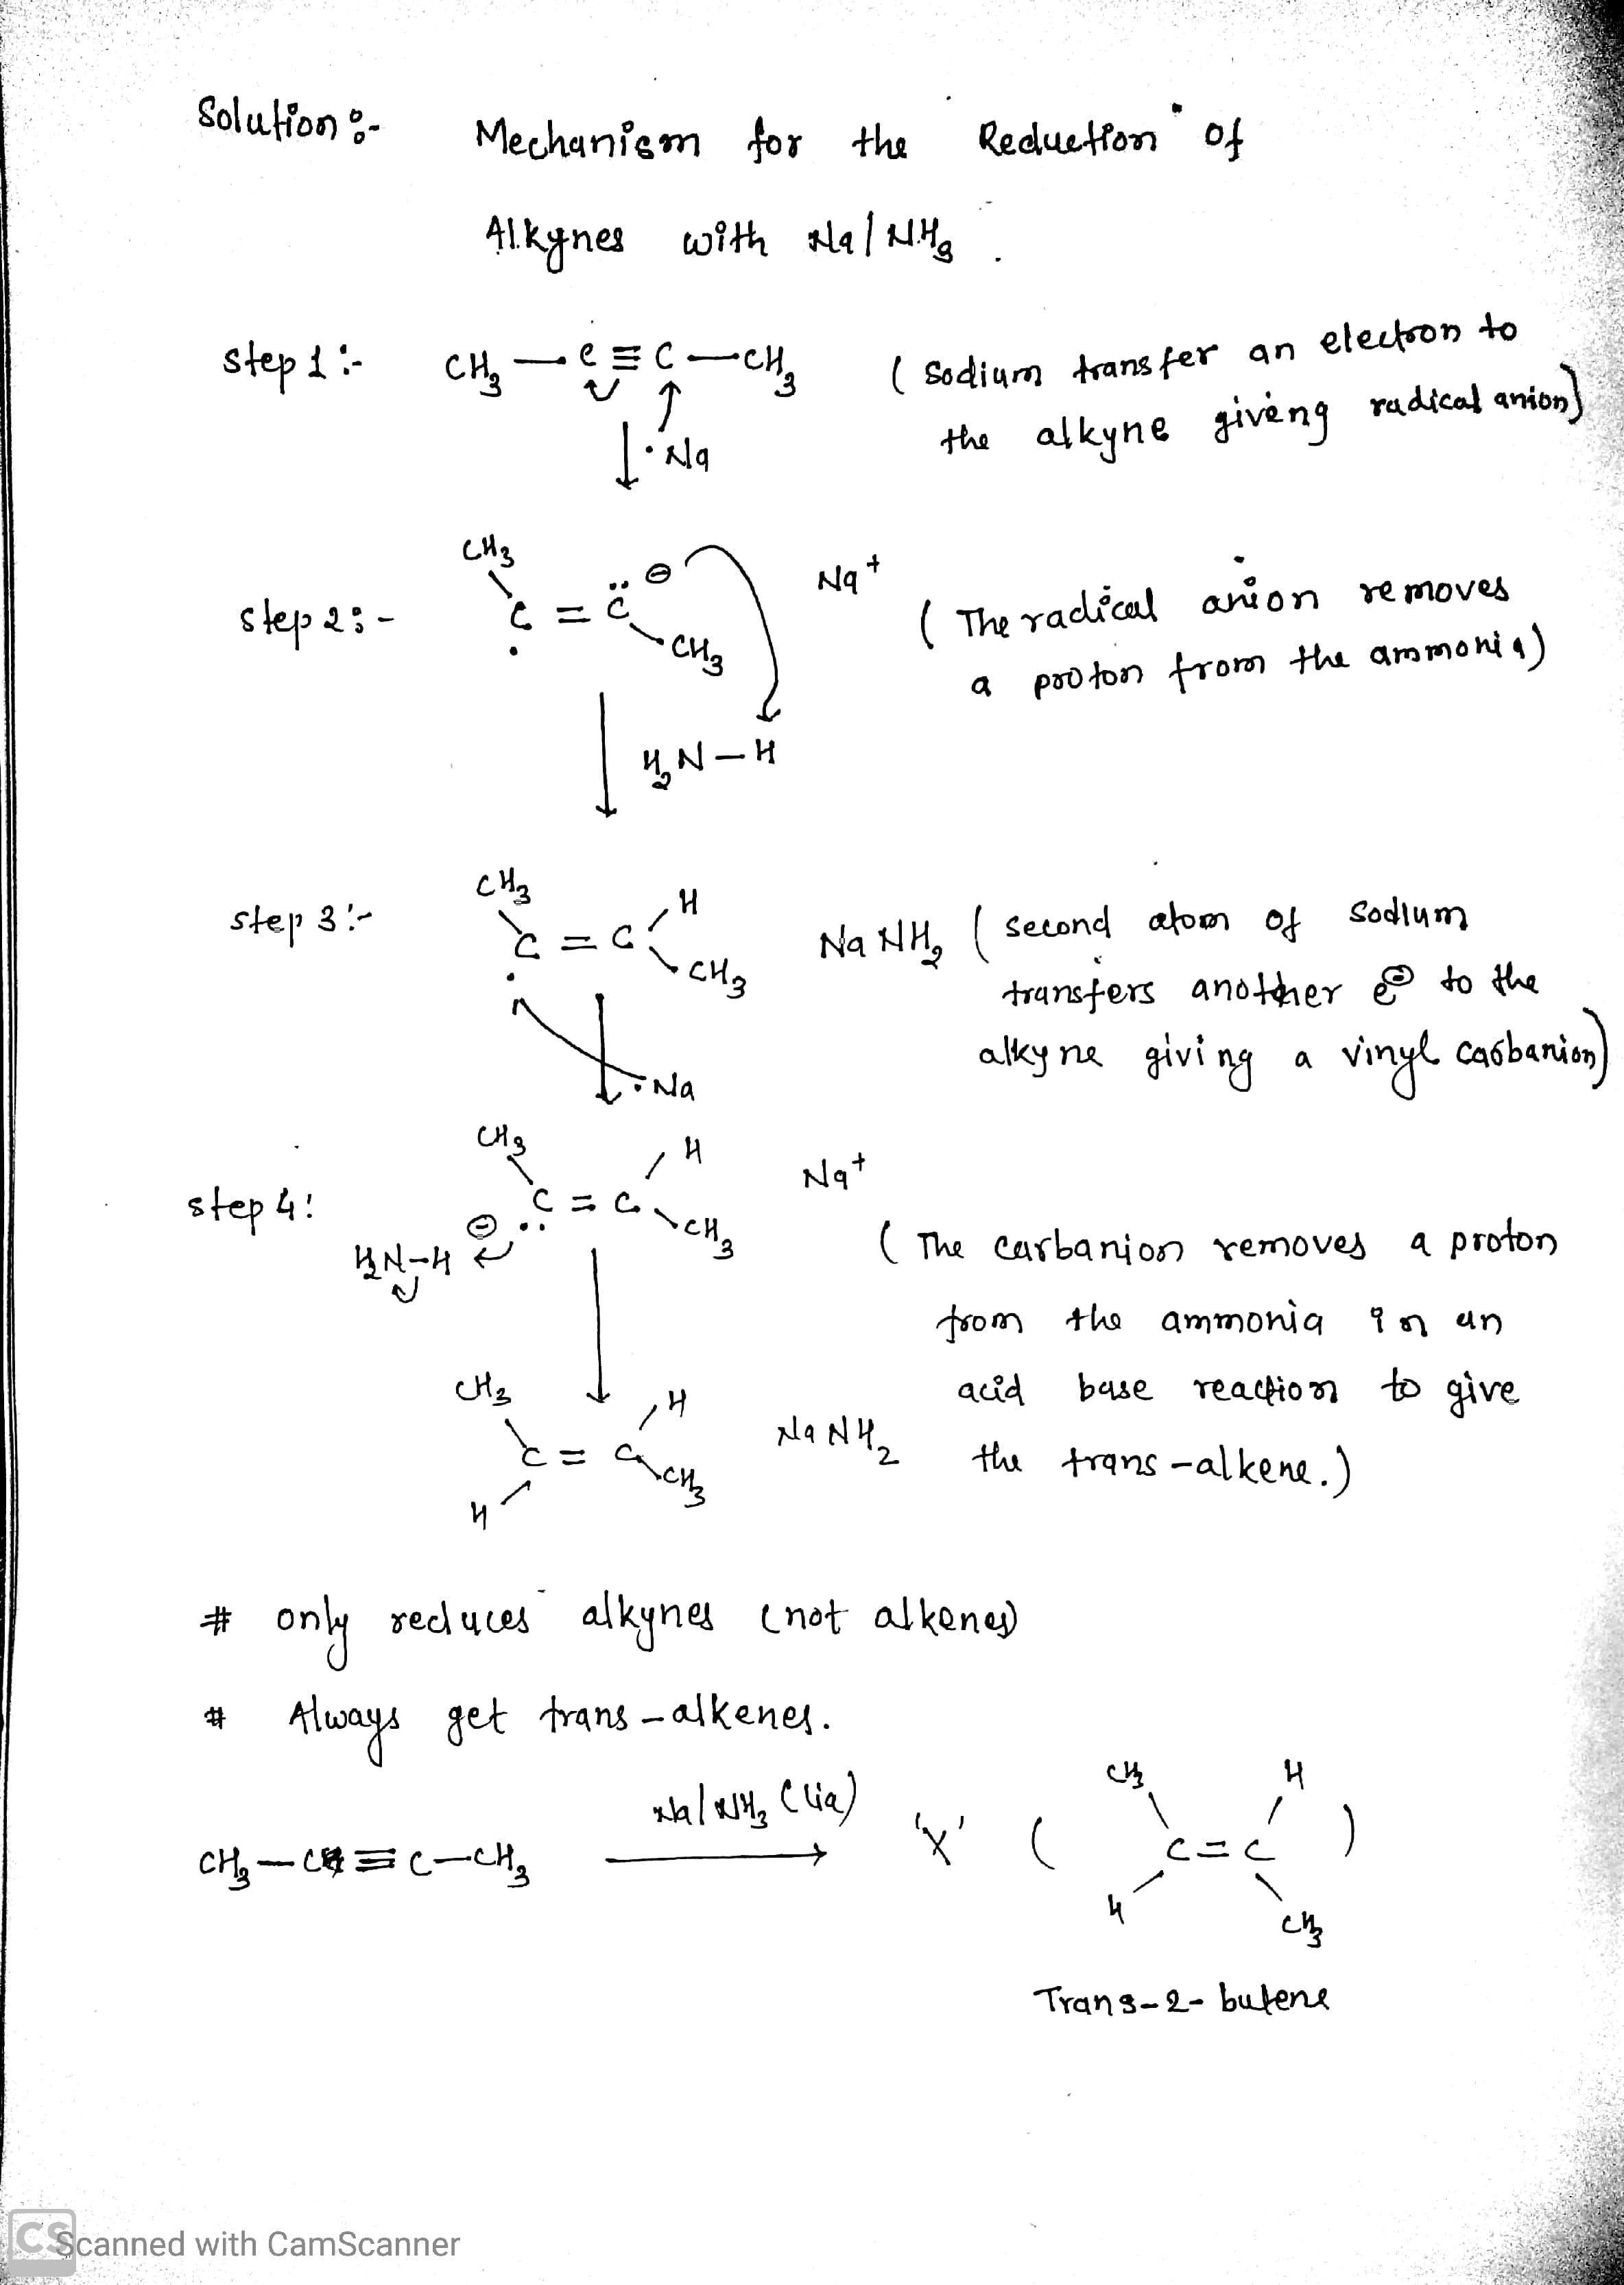 Solution :-
Mechanism for the Reduction of
Alkynes with Na/NH3.
step 1 :- CH3 — C ≡ C — CH3 ( Sodium transfer an electron to
the alkyne giving radical anion)
. Na
CH3
step 2 :- C = C ⊖ Na+ ( The radical anion removes
CH3 a proton from the ammonia)
H2N — H
CH3 H
step 3 :- C = C NaNH2 ( second atom of sodium
CH3 transfers another e⊖ to the
alkyne giving a vinyl carbanion)
. Na
CH3 H
step 4 : ⊖ C = C Na+
CH3
H2N-H ( The carbanion removes a proton
from the ammonia in an
CH3 H acid base reaction to give
C = C NaNH2 the trans - alkene.)
H CH3
# only reduces alkynes (not alkenes)
# Always get trans - alkenes.
CH3 — C ≡ C — CH3 Na/NH3 (liq) 'X' ( CH3 H C = C H CH3 )
Trans-2-butene
CS Scanned with CamScanner